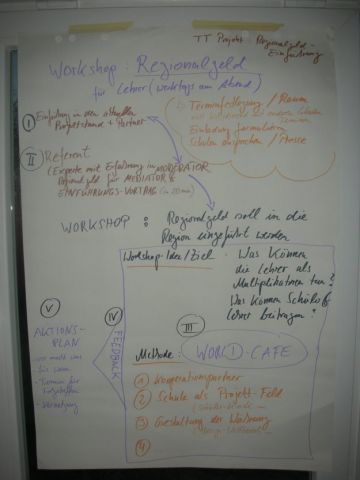 TT Projekt: Regionalgeld-
Einführung
Workshop: Regionalgeld
für Lehrer (werktags am Abend)
Terminfestlegung / Raum
Einladung formulieren
Schulen ansprechen / Presse
I Einführung in den aktuellen
Projektstand + Partner
II Referent
(Experte mit Erfahrung im MODERATOR
Regionalgeld für MEDIATOR &
EINFÜHRUNGS-VORTRAG (in 20 min)
WORKSHOP: Regionalgeld soll in die
Region eingeführt werden
Workshop-Idee/Ziel: Was können
die Lehrer als
Multiplikatoren tun?
Was können Schüler &
Lehrer beitragen?
V
AKTIONS-
PLAN
- wer macht was
bis wann
- Vernetzung
IV
FEEDBACK
III
Methode: WORLD-CAFE
1 Kooperationspartner
2 Schule als Projekt-Feld
3 Gestaltung der Währung
4